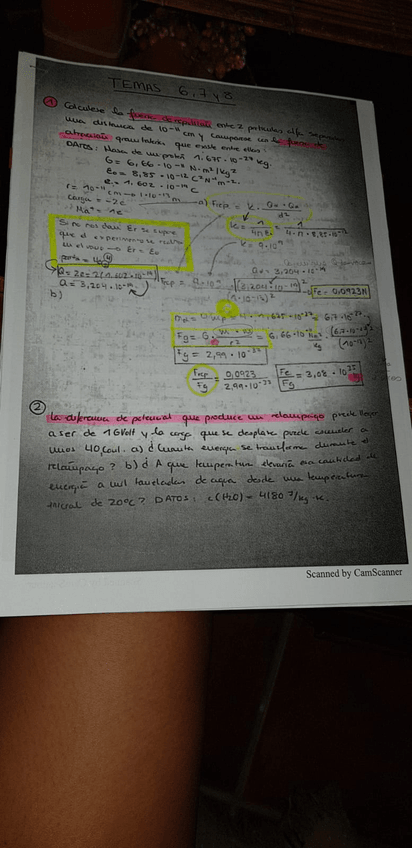 TEMAS 6, 7 y 8
① Calcúlese la fuerza de repulsión entre 2 partículas alfa separadas
una distancia de 10⁻¹¹ cm y compárese con la fuerza de
atracción gravitatoria que existe entre ellas.
DATOS: Masa de un protón 1,675·10⁻²⁷ kg.
G = 6,66·10⁻¹¹ N·m²/kg²
ε₀ = 8,85·10⁻¹² C²N⁻¹m⁻²
e = 1,602·10⁻¹⁹ C
r = 10⁻¹¹ cm → 1·10⁻¹³ m
a) Frep = K · Qα · Qα / d²
carga = +2e
Si no nos dan Er se supone
que el experimento se realiza
en el vacío → Er = E₀
K = 1 / 4πε₀
K = 9·10⁹
Q = 2e = 2(1,602·10⁻¹⁹)
Q = 3,204·10⁻¹⁹
Qα = 3,204·10⁻¹⁹
Frep = 9·10⁹ · (3,204·10⁻¹⁹)² / (1·10⁻¹³)²
Fe = 0,0923N
b)
Fg = G · = 6,66·10⁻¹¹
Fg = 2,99·10⁻³⁷
Frep / Fg = 0,0923 / 2,99·10⁻³⁷
Fe / Fg = 3,08·10³⁵
② La diferencia de potencial que produce un relámpago puede llegar
a ser de 1GVolt y la carga que se desplaza puede ascender a
unos 40 Coul. a) ¿Cuánta energía se transforma durante el
relámpago? b) ¿A qué temperatura elevaría esa cantidad de
energía a mil toneladas de agua desde una temperatura
inicial de 20ºC? DATOS: c(H₂O) = 4180 J/kg·K.
Scanned by CamScanner